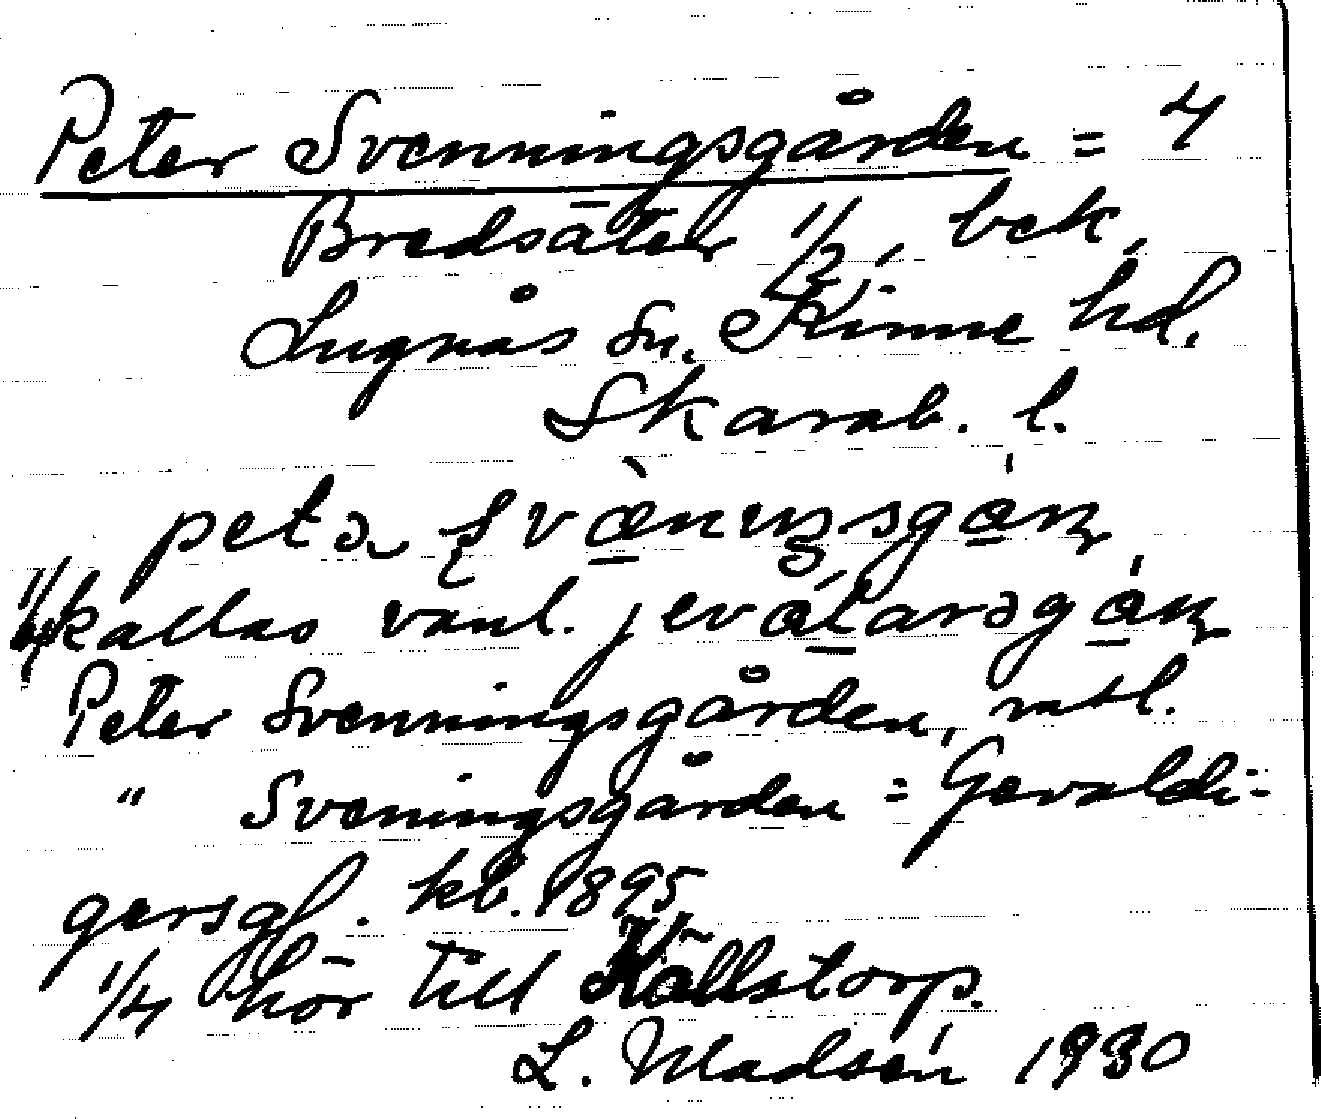 Peter Svenningsgården = 4
Bredsäter 1/2, bek.
Lugnås sn. Kinne hd.
Skarab. l.
petə svæninsgá̱ṇ
1/4 kallas vanl. jeválarsgá̱ṇ
Peter Svenningsgården, mtl.
" Sveningsgården = Gevaldi-
gersgl. kb. 1895
1/4 hör till Källstorp.
L. Madsén 1930